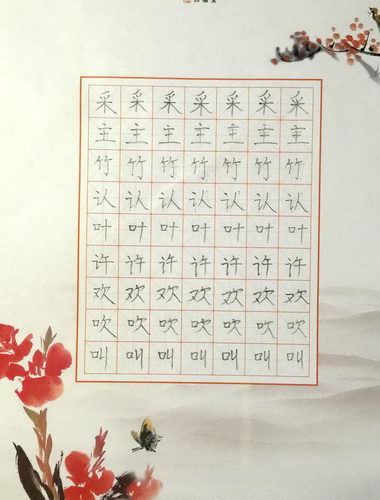 采采采采采采采
主主主主主主主
竹竹竹竹竹竹竹
认认认认认认认
叶叶叶叶叶叶叶
许许许许许许许
欢欢欢欢欢欢欢
吹吹吹吹吹吹吹
叫叫叫叫叫叫叫